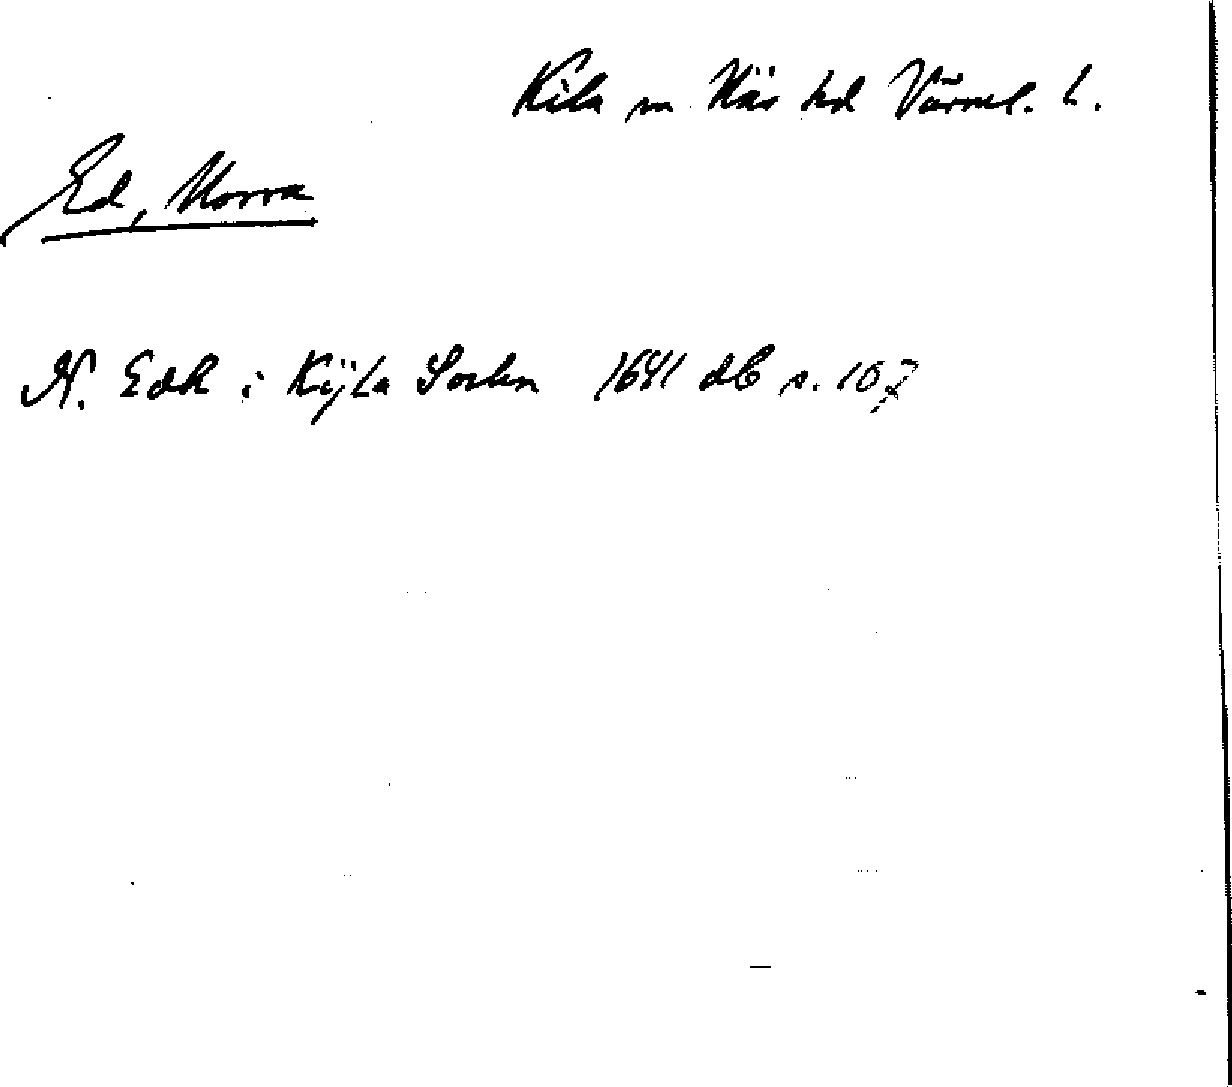 Kila sn Näs hd Värml. L.
Ed, Norra
N. Edh i Kÿla Sochn 1641 db s. 107